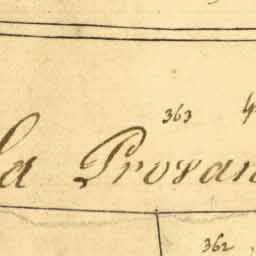 363
La Provan
362